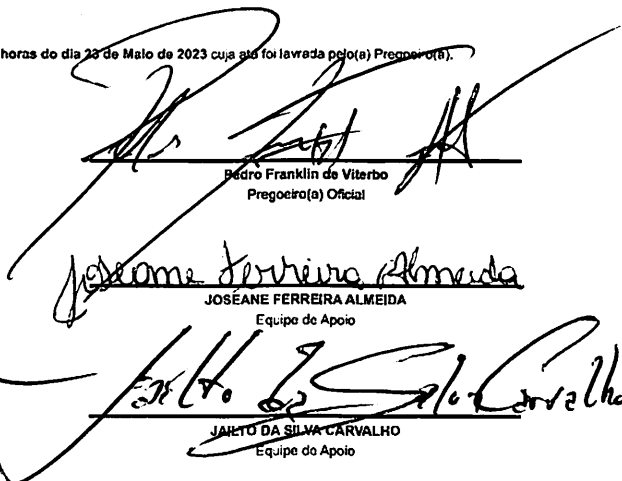 horas do dia 23 de Maio de 2023 cuja ata foi lavrada pelo(a) Pregoeiro(a).
Pedro Franklin de Viterbo
Pregoeiro(a) Oficial
Joseane Ferreira Almeida
JOSEANE FERREIRA ALMEIDA
Equipe de Apoio
Jailto da Silva Carvalho
JAILTO DA SILVA CARVALHO
Equipe de Apoio